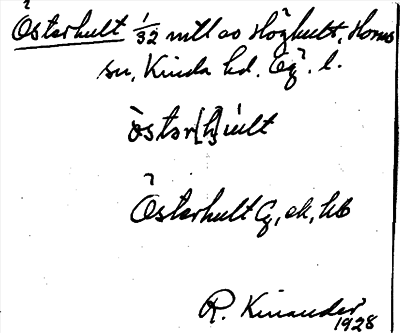 Österhult 1/32 mtl av Höghult, Horns
sn, Kinda hd, Ög. l.
öster[h]ult
Österhult G, ek, hb
R. Kinander
1928